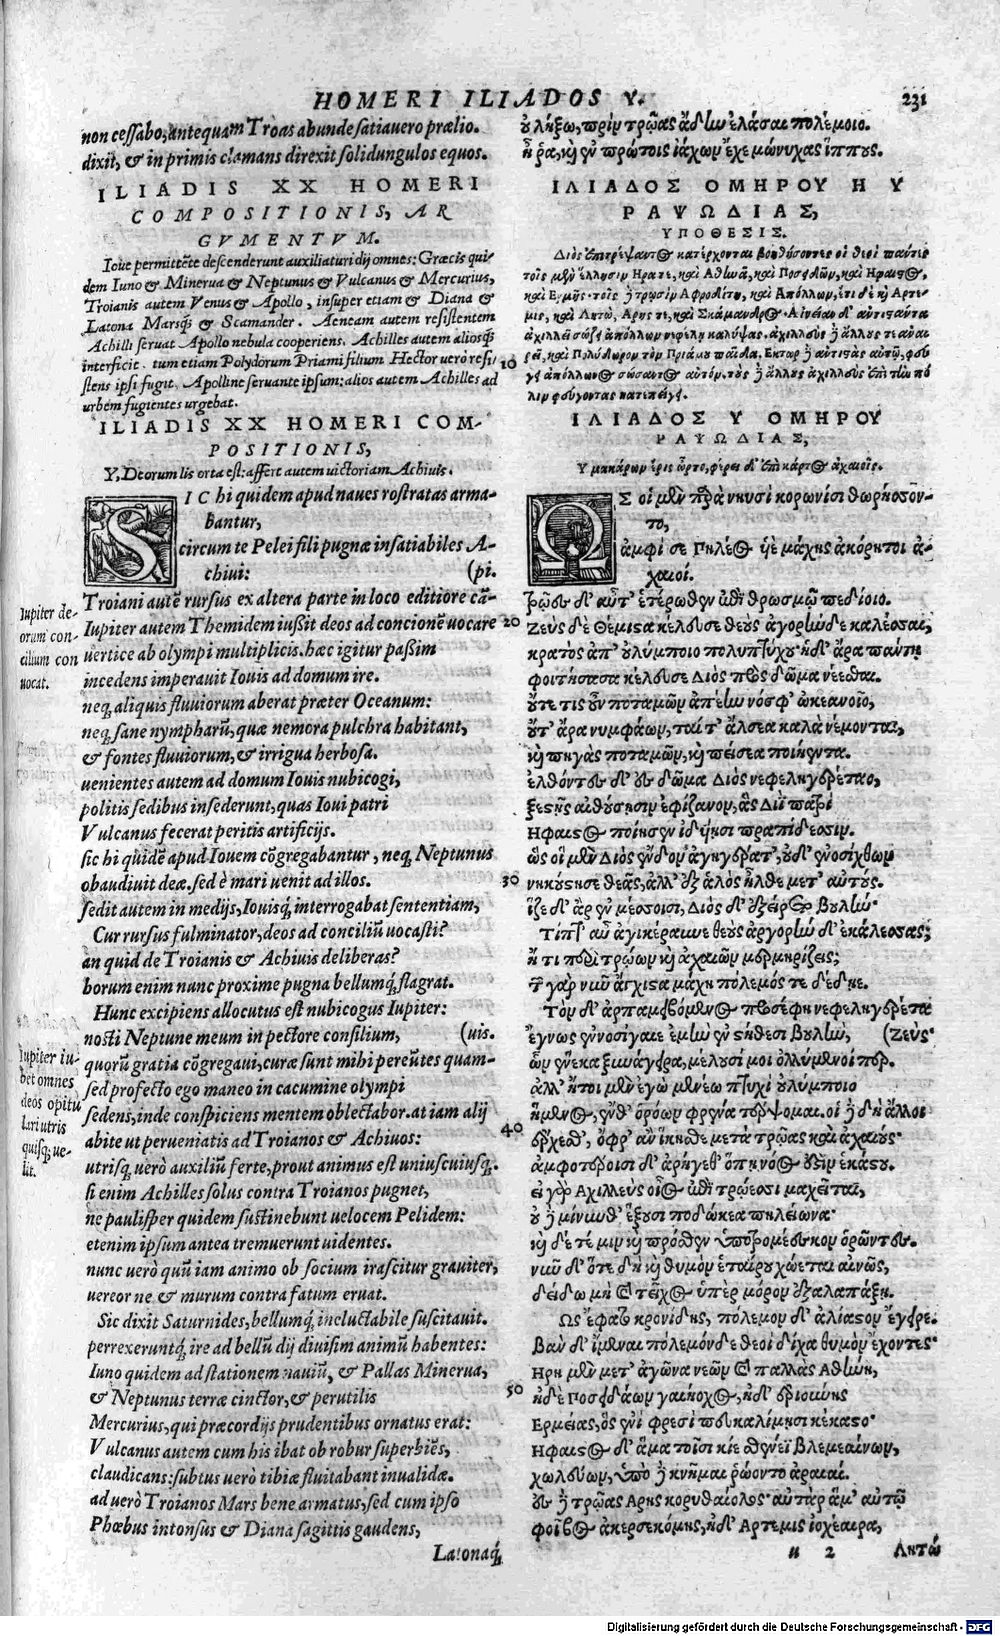 HOMERI ILIADOS Υ. 231
non cessabo, antequam Troas abunde satiavero prælio.
dixit, & in primis clamans direxit solidungulos equos.
ILIADIS XX HOMERI
COMPOSITIONIS, AR
GVMENTVM.
Ioue permittēte descenderunt auxiliaturi dij omnes: Græcis qui
dem Iuno & Minerua & Neptunus & Vulcanus & Mercurius,
Troianis autem Venus & Apollo, insuper etiam & Diana &
Latona Marsq́; & Scamander. Aeneam autem resistentem
Achilli seruat Apollo nebula cooperiens. Achilles autem aliosq́;
interficit. tum etiam Polydorum Priami filium Hector uerò resi/
stens ipsi fugit. Apolline seruante ipsum: alios autem Achilles ad
urbem fugientes urgebat.
ILIADIS XX HOMERI COM-
POSITIONIS,
Υ, Deorum lis orta est: affert autem uictoriam Achiuis.
SIC hi quidem apud naues rostratas arma-
bantur,
circum te Pelei fili pugnæ insatiabiles A-
chiui: (pi.
Troiani autē rursus ex altera parte in loco editiore cā-
Iupiter autem Themidem iußit deos ad concionē uocare
uertice ab olympi multiplicis. hæc igitur paßim
incedens imperauit Iouis ad domum ire.
neq; aliquis fluuiorum aberat præter Oceanum:
neq; sane nympharū, quæ nemora pulchra habitant,
& fontes fluuiorum, & irrigua herbosa.
uenientes autem ad domum Iouis nubicogi,
politis sedibus insederunt, quas Ioui patri
Vulcanus fecerat peritis artificijs.
sic hi quidē apud Iouem cōgregabantur, neq; Neptunus
obaudiuit deæ. sed è mari uenit ad illos.
sedit autem in medijs, Iouisq́; interrogabat sententiam,
Cur rursus fulminator, deos ad conciliū uocasti?
an quid de Troianis & Achiuis deliberas?
horum enim nunc proxime pugna bellumq́; flagrat.
Hunc excipiens allocutus est nubicogus Iupiter:
nosti Neptune meum in pectore consilium, (uis.
quorū gratia cōgregaui, curæ sunt mihi pereūtes quam-
sed profecto ego maneo in cacumine olympi
sedens, inde conspiciens mentem oblectabor. at iam alij
abite ut perueniatis ad Troianos & Achiuos:
utrisq; uerò auxiliū ferte, prout animus est uniuscuiusq;.
si enim Achilles solus contra Troianos pugnet,
ne paulisper quidem sustinebunt uelocem Pelidem:
etenim ipsum antea tremuerunt uidentes.
nunc uerò quū iam animo ob socium irascitur grauiter,
uereor ne & murum contra fatum eruat.
Sic dixit Saturnides, bellumq́; ineluctabile suscitauit.
perrexeruntq́; ire ad bellū dij diuisim animū habentes:
Iuno quidem ad stationem nauiū, & Pallas Minerua,
& Neptunus terræ cinctor, & perutilis
Mercurius, qui præcordijs prudentibus ornatus erat:
Vulcanus autem cum his ibat ob robur superbiēs,
claudicans: subtus uerò tibiæ fluitabant inualidæ.
ad uerò Troianos Mars bene armatus, sed cum ipso
Phœbus intonsus & Diana sagittis gaudens,
Latonaq́;
Iupiter de-
orum con-
cilium con
uocat.
Iupiter iu-
bet omnes
deos opitu
lari utris
quisq; ue-
lit.
10
20
30
40
50
οὐ λήξω, πρὶν τρῶας ἅδην ἐλάσαι πολέμοιο.
ἦ ῥα, καὶ ἐν πρώτοις ἰάχων ἔχε μώνυχας ἵππους.
ΙΛΙΑΔΟΣ ΟΜΗΡΟΥ Η Υ
ΡΑΨΩΔΙΑΣ,
ΥΠΟΘΕΣΙΣ.
Διὸς ἐπιτρέψαντος κατέρχονται βοηθήσοντες οἱ θεοὶ πάντες
τοῖς μὲν ἕλλησιν Ηρα τε, καὶ Αθηνᾶ, καὶ Ποσειδῶν, καὶ Ηφαιστος,
καὶ Ερμῆς· τοῖς δὲ τρωσὶν Αφροδίτη, καὶ Απόλλων, ἔτι δὲ καὶ Αρτε-
μις, καὶ Λητώ, Αρης τε, καὶ Σκάμανδρος. Αἰνείαν δ' αὐτιστάντα
ἀχιλλεῖ σώζει ἀπόλλων νεφέλῃ καλύψας. ἀχιλλεὺς δὲ ἄλλους τε ἀναι
ρεῖ, καὶ Πολύδωρον τὸν Πριάμου παῖδα, Εκτωρ δὲ ἀντιστὰς αὐτῷ, φεύ
γει ἀπόλλωνος σώσαντος αὐτόν. τοὺς δὲ ἄλλους ἀχιλλεὺς ἐπὶ τὴν πό
λιν φεύγοντας κατεπείγει.
ΙΛΙΑΔΟΣ Υ ΟΜΗΡΟΥ
ΡΑΨΩΔΙΑΣ,
Υ μακάρων ἔρις ὦρτο, φέρει δ' ἐπὶ κάρτος ἀχαιοῖς.
ΩΣ οἱ μὲν παρὰ νηυσὶ κορωνίσι θωρήσσον-
το,
ἀμφί σε Πηλέος ὑὲ μάχης ἀκόρητοι ἀ-
χαιοί.
Τρῶες δ' αὖθ' ἑτέρωθεν ἐπὶ θρωσμῷ πεδίοιο.
Ζεὺς δὲ Θέμιστα κέλευσε θεοὺς ἀγορὴν δὲ καλέσσαι,
κρατὸς ἀπ' οὐλύμποιο πολυπτύχου· ἡ δ' ἄρα πάντῃ
φοιτήσασα κέλευσε Διὸς πρὸς δῶμα νέεσθαι.
οὔτε τις οὖν ποταμῶν ἀπέην νόσφ' ὠκεανοῖο,
οὔτ' ἄρα νυμφάων, ταί τ' ἄλσεα καλὰ νέμονται,
καὶ πηγὰς ποταμῶν, καὶ πείσεα ποιήεντα.
ἐλθόντες δ' ἐς δῶμα Διὸς νεφεληγερέταο,
ξεστῇς αἰθούσῃσιν ἐφίζανον, ἃς Διῒ πατρὶ
Ηφαιστος ποίησεν ἰδυίῃσι πραπίδεσσιν.
ὣς οἱ μὲν Διὸς ἔνδον ἀγηγέρατ', οὐδ' ἐνοσίχθων
νηκούστησε θεᾶς, ἀλλ' ἐξ ἁλὸς ἦλθε μετ' αὐτούς.
ἷζε δ' ἄρ' ἐν μέσσοισι, Διὸς δ' ἐξείρετο βουλήν·
Τίπτ' αὖ ἀργικέραυνε θεοὺς ἀγορὴν δ' ἐκάλεσσας;
ἦ τι περὶ τρώων καὶ ἀχαιῶν μερμηρίζεις;
τῶν γὰρ νῦν ἄγχιστα μάχη πόλεμός τε δέδηε.
Τὸν δ' ἀπαμειβόμενος προσέφη νεφεληγερέτα
ἔγνως ἐννοσίγαιε ἐμὴν ἐν στήθεσι βουλήν, (Ζεύς·
ὧν ἕνεκα ξυνάγειρα, μέλουσί μοι ὀλλύμενοί περ.
ἀλλ' ἤτοι μὲν ἐγὼ μενέω πτυχὶ οὐλύμποιο
ἥμενος, ἔνθ' ὁρόων φρένα τέρψομαι. οἱ δὲ δὴ ἄλλοι
ἔρχεσθ', ὄφρ' ἂν ἵκησθε μετὰ τρῶας καὶ ἀχαιούς·
ἀμφοτέροισι δ' ἀρήγεθ' ὅπῃ νόος ἐστὶν ἑκάστου.
εἰ γὰρ Αχιλλεὺς οἶος ἐπὶ τρώεσσι μαχεῖται,
οὐδὲ μίνυνθ' ἕξουσι ποδώκεα πηλείωνα·
καὶ δέ τέ μιν καὶ πρόσθεν ὑποτρομέεσκον ὁρῶντες.
νῦν δ' ὅτε δὴ καὶ θυμὸν ἑταίρου χώεται αἰνῶς,
δείδω μὴ καὶ τεῖχος ὑπὲρ μόρον ἐξαλαπάξῃ.
Ως ἔφατο κρονίδης, πόλεμον δ' ἀλίαστον ἔγειρε.
Βὰν δ' ἴμεναι πόλεμόνδε θεοὶ δίχα θυμὸν ἔχοντες·
Ηρη μὲν μετ' ἀγῶνα νεῶν καὶ παλλὰς Αθήνη,
ἠδὲ Ποσειδάων γαιήοχος, ἠδ' ἐριούνης
Ερμείας, ὃς ἐνὶ φρεσὶ πευκαλίμῃσι κέκαστο·
Ηφαιστος δ' ἅμα τοῖσι κίε σθένεϊ βλεμεαίνων,
χωλεύων, ὑπὸ δὲ κνῆμαι ῥώοντο ἀραιαί.
ἐς δὲ τρῶας Αρης κορυθαίολος· αὐτὰρ ἅμ' αὐτῷ
φοῖβος ἀκερσεκόμης, ἠδ' Αρτεμις ἰοχέαιρα,
u 2 Λητώ
Digitalisierung gefördert durch die Deutsche Forschungsgemeinschaft - DFG